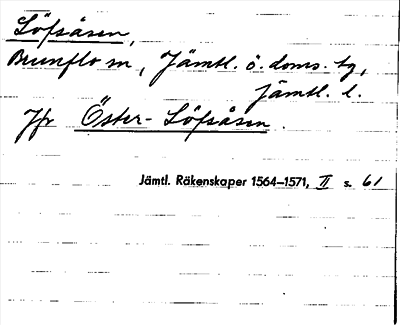 Löfsåsen,
Brunflo sn, Jämtl. ö. doms. tg,
Jämtl. l.
Jfr Öster-Löfsåsen.
Jämtl. Räkenskaper 1564–1571, II s. 61